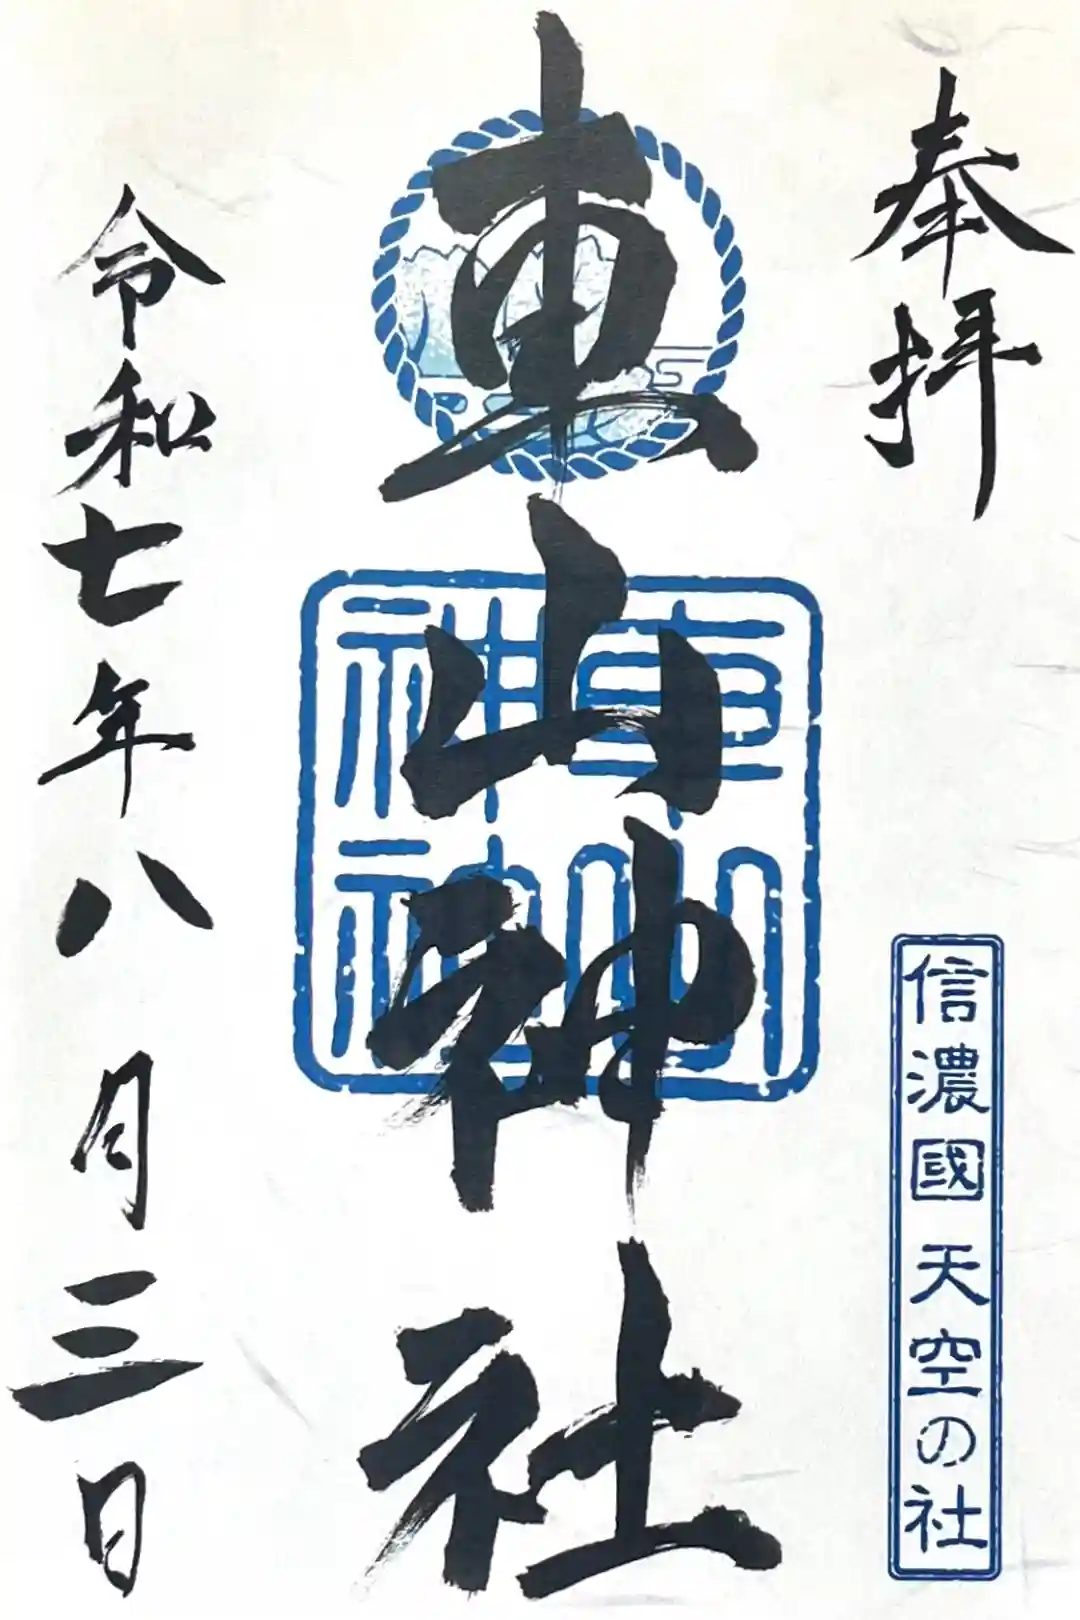 奉拝
信濃國 天空の社
車山神社
令和七年八月三日